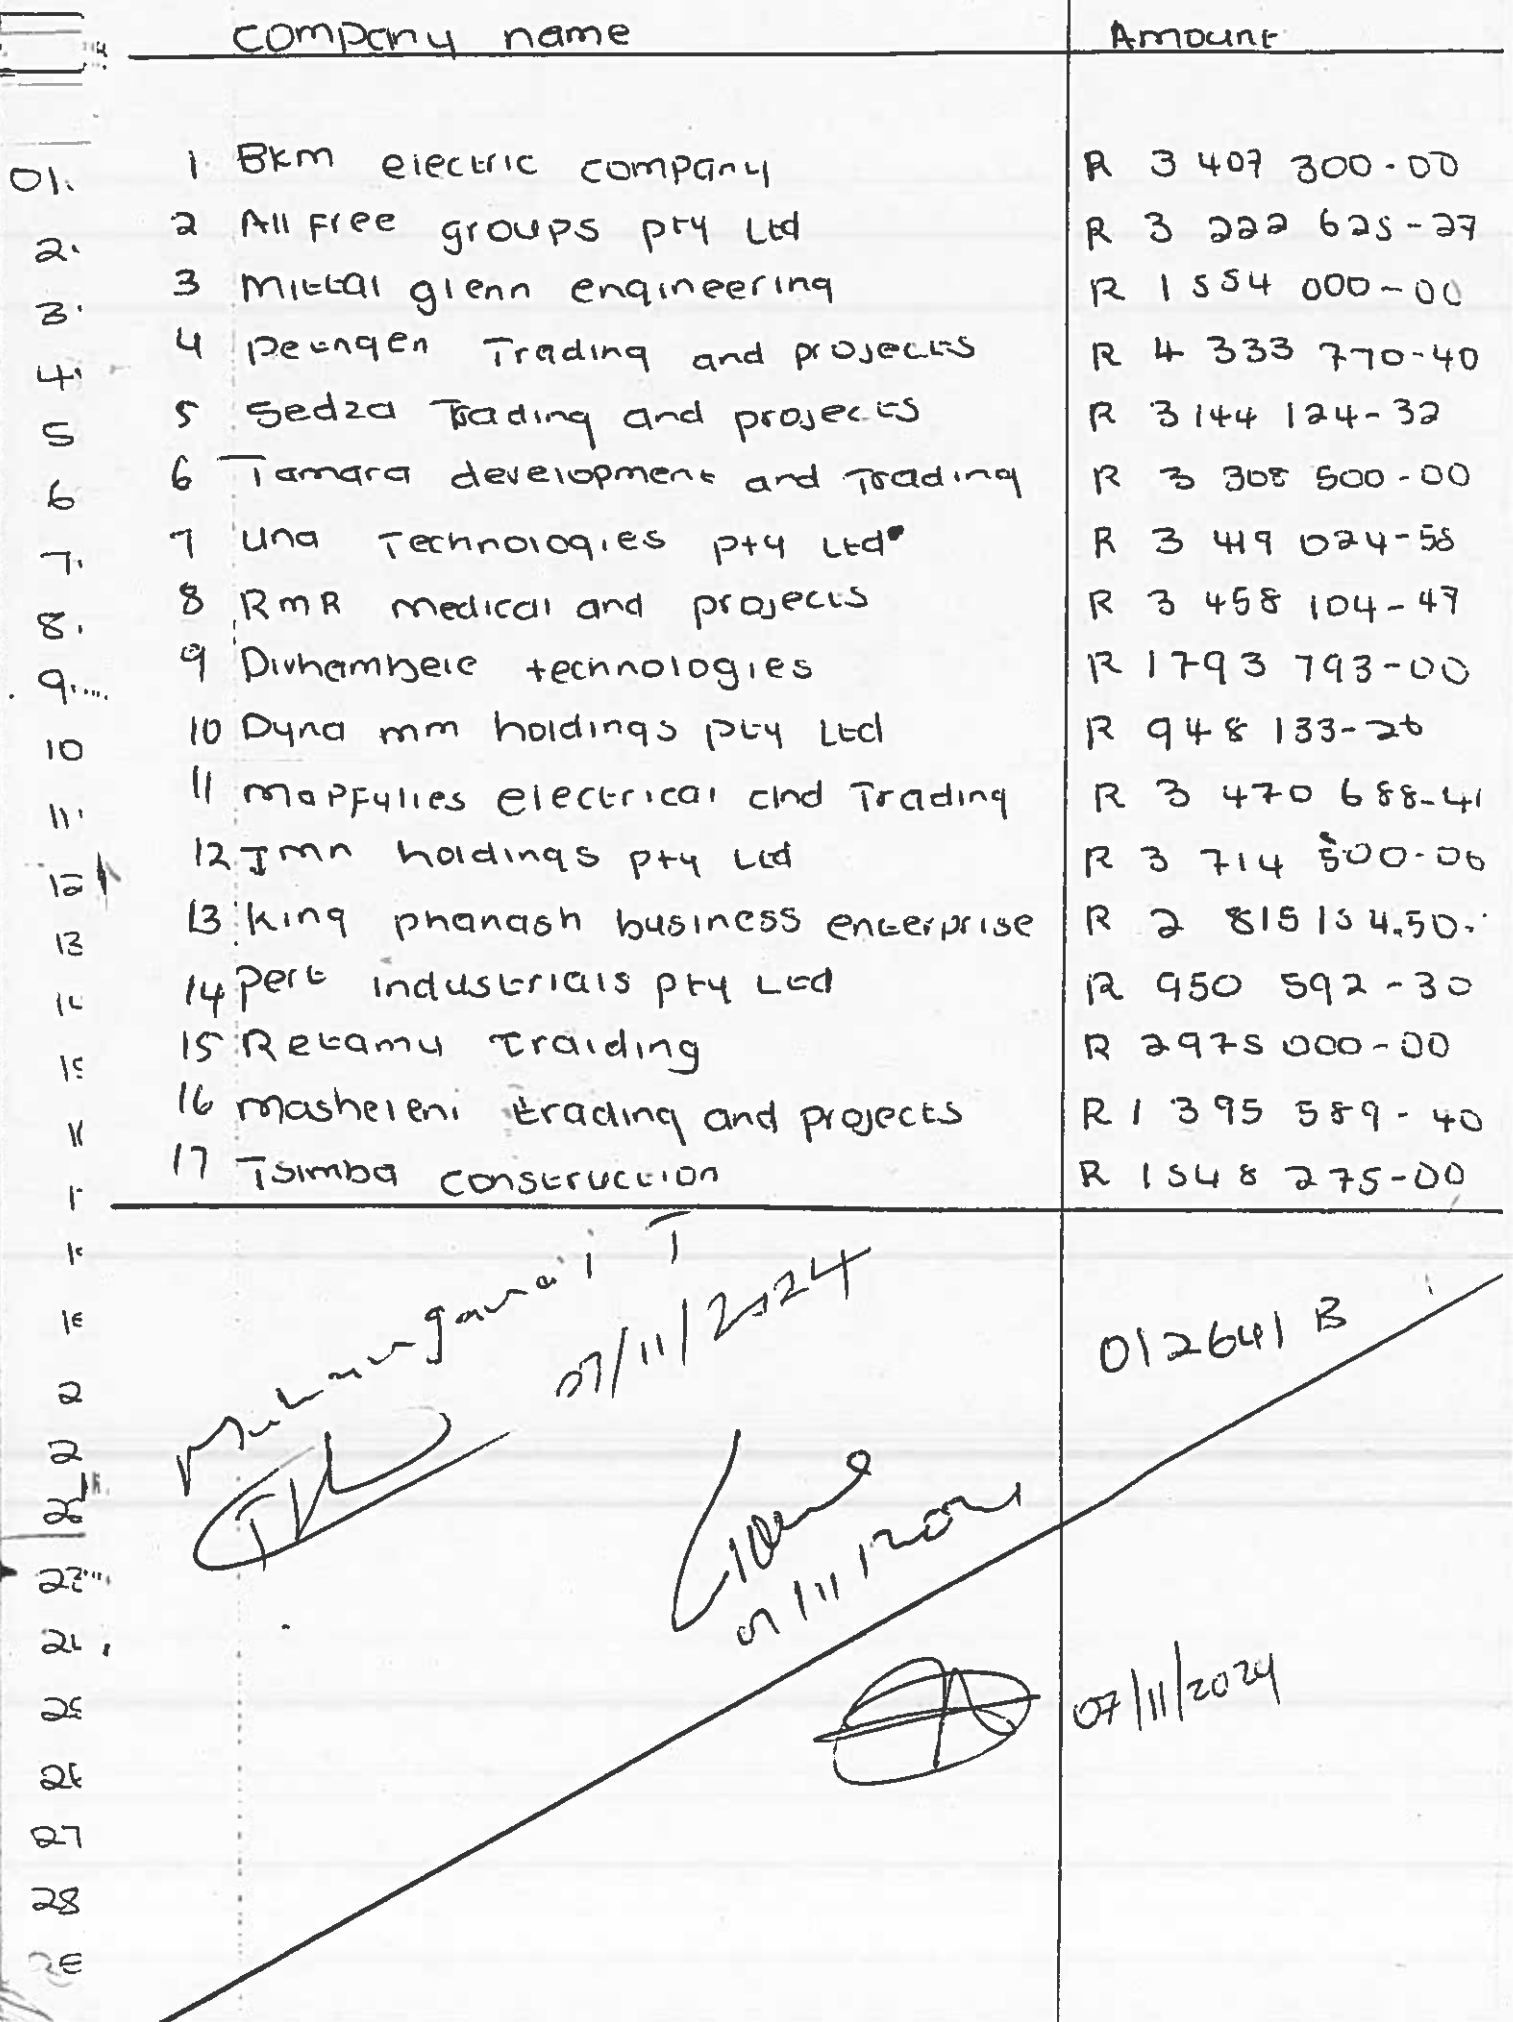 company name Amount
01. 1 Bkm electric company R 3 407 300-00
2. 2 All Free groups pty Ltd R 3 222 625-27
3. 3 Mittal glenn engineering R 1 554 000-00
4. 4 Peengen Trading and projects R 4 333 770-40
5 5 Sedza Trading and projects R 3 144 124-32
6 6 Tamara development and Trading R 3 308 500-00
7. 7 Una Technologies pty Ltd R 3 419 024-58
8. 8 RmR medical and projects R 3 458 104-47
9. 9 Divhambele technologies R 1793 793-00
10 10 Dyna mm holdings pty Ltd R 948 133-26
11. 11 Mapfylies electrical and Trading R 3 470 688-41
12 12 Jmn holdings pty Ltd R 3 714 500-00
13 13 King phanash business enterprise R 2 815 154.50
14 Pert industrials pty Ltd R 950 592-30
15 Retamu Traiding R 2975 000-00
16 masheleni trading and projects R 1 395 589-40
17 Tsimba construction R 1548 275-00
T
07/11/2024
012641 B
07/11/2024
27
28